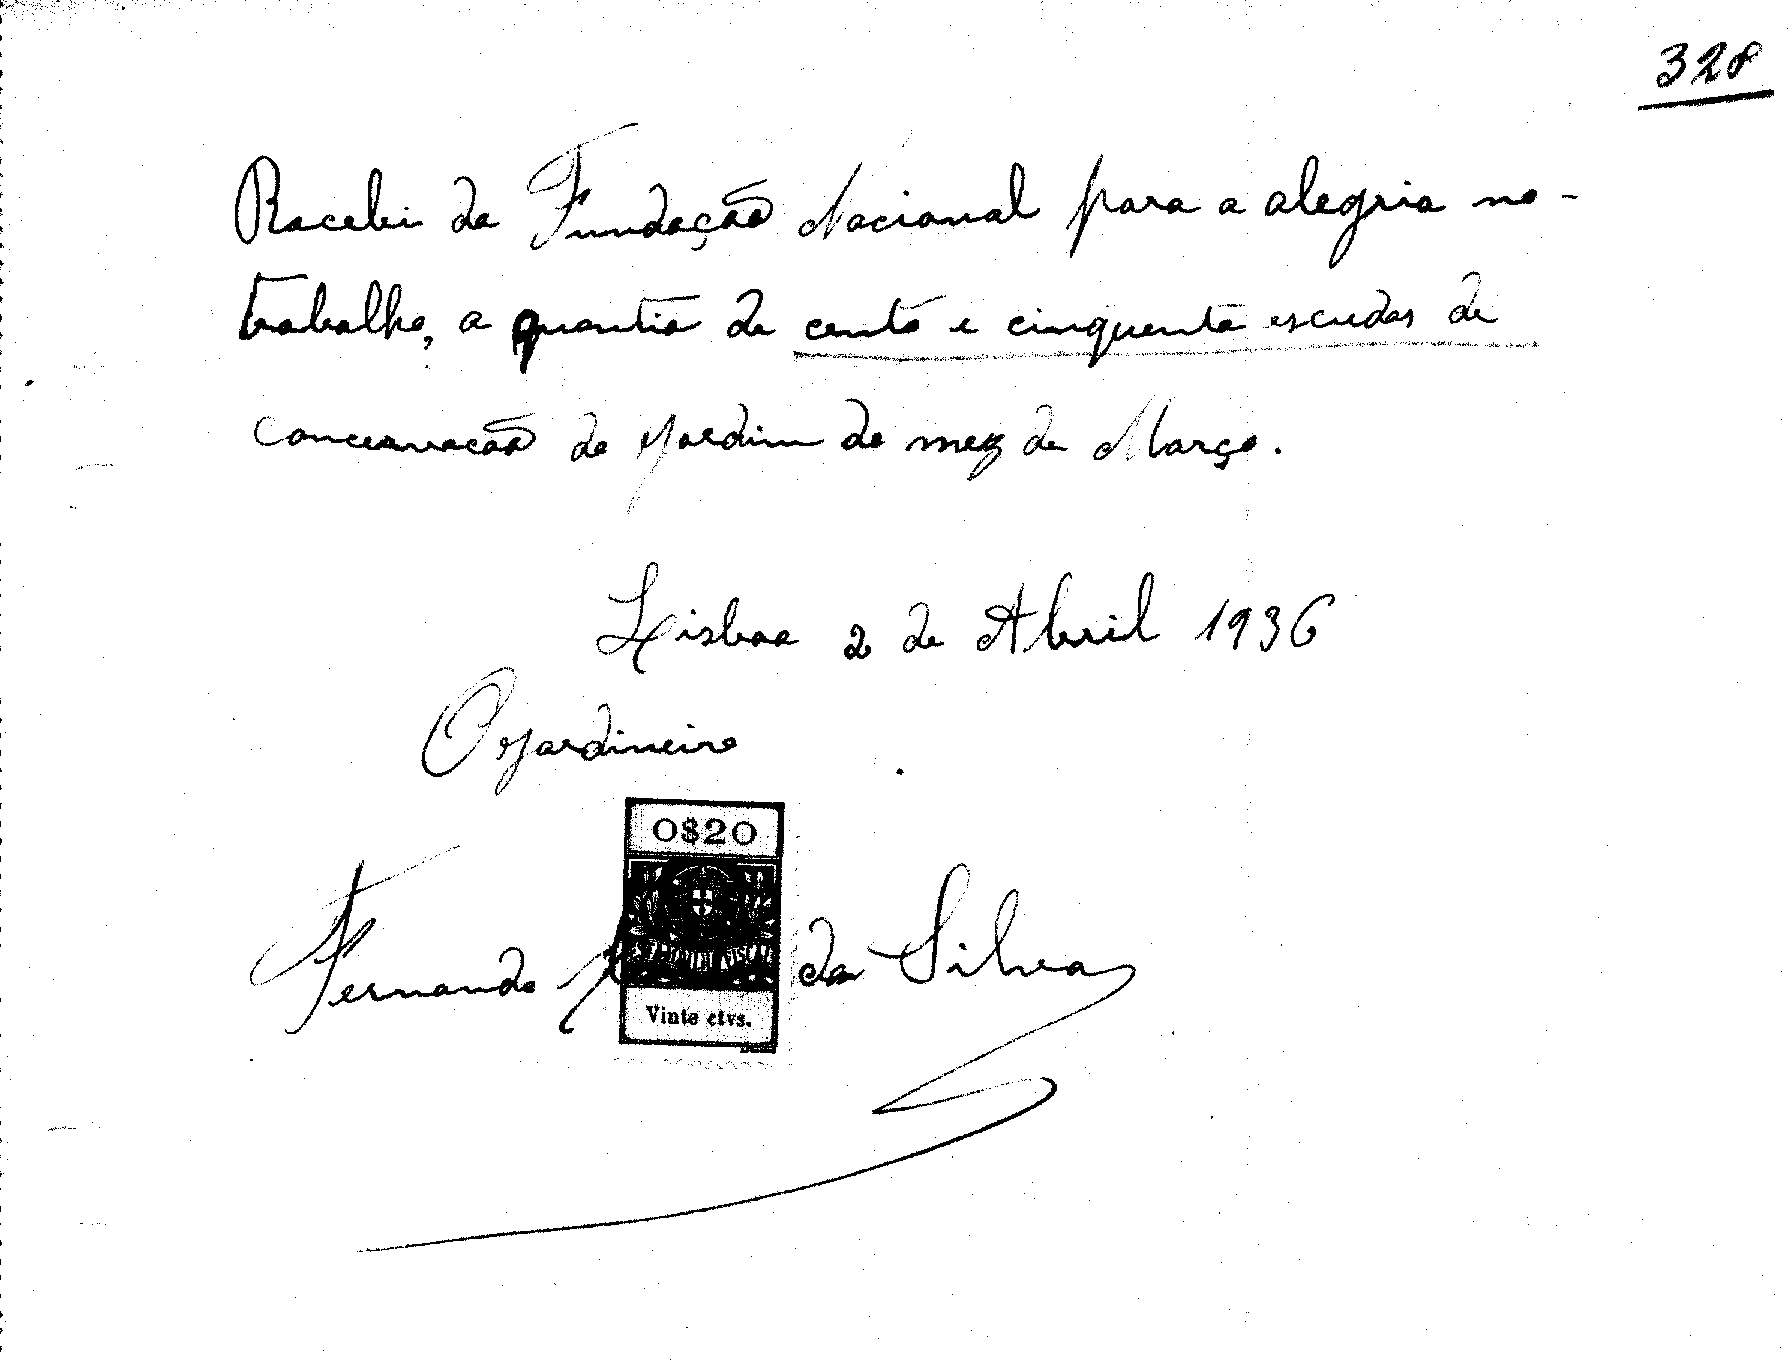 328
Racebi da Fundação Nacional para a alegria no-
trabalho, a quantia de cento e cinquenta escudos de
concervacão do jardim do mez de Março.
Lisboa 2 de Abril 1936
O jardineiro
0$20
Vinte ctvs.
Fernando da Silva